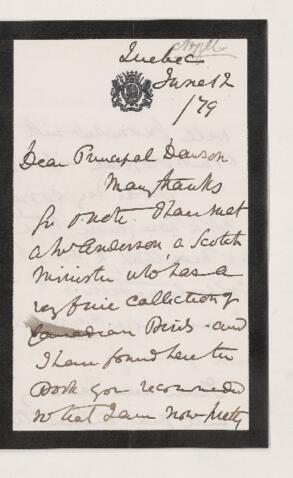 Argyll
Quebec
June 12
/79
Dear Principal Dawson
Many thanks
for note. I have met
a Mr Anderson a Scotch
Minister who has a
very fine collection of
Canadian Birds - and
I have found here the
Book you recommended
so that I am now pretty